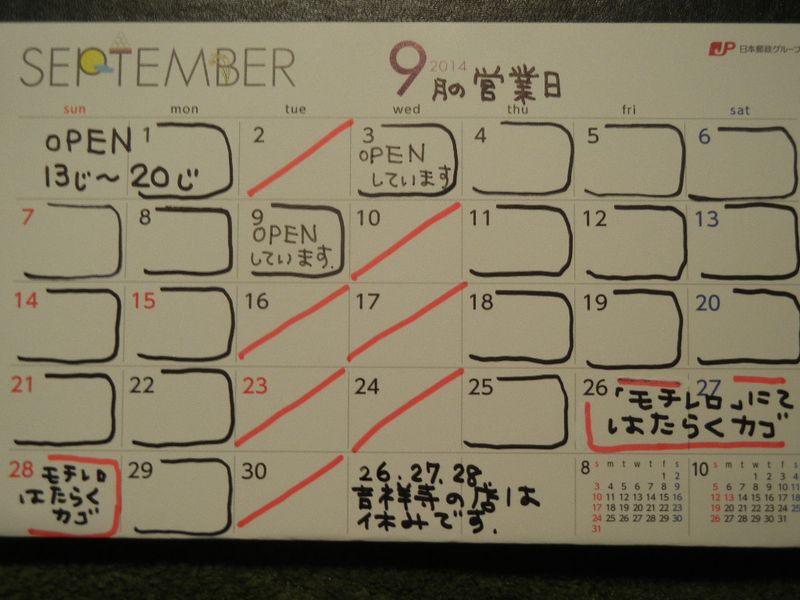 SEPTEMBER
9
2014
月の営業日
JP 日本郵政グループ
sun mon tue wed thu fri sat
OPEN
13じ～20じ
1 2 3 4 5 6
OPEN
しています
7 8 9 10 11 12 13
OPEN
しています.
14 15 16 17 18 19 20
21 22 23 24 25 26 27
「モチレロ」にて
はたらくカゴ
28 29 30
モチレロ
はたらく
カゴ
26.27.28
吉祥寺の店は
休みです.
8
s m t w t f s
1 2
3 4 5 6 7 8 9
10 11 12 13 14 15 16
17 18 19 20 21 22 23
24 25 26 27 28 29 30
31
10
s m t w t f s
1 2 3 4
5 6 7 8 9 10 11
12 13 14 15 16 17 18
19 20 21 22 23 24 25
26 27 28 29 30 31